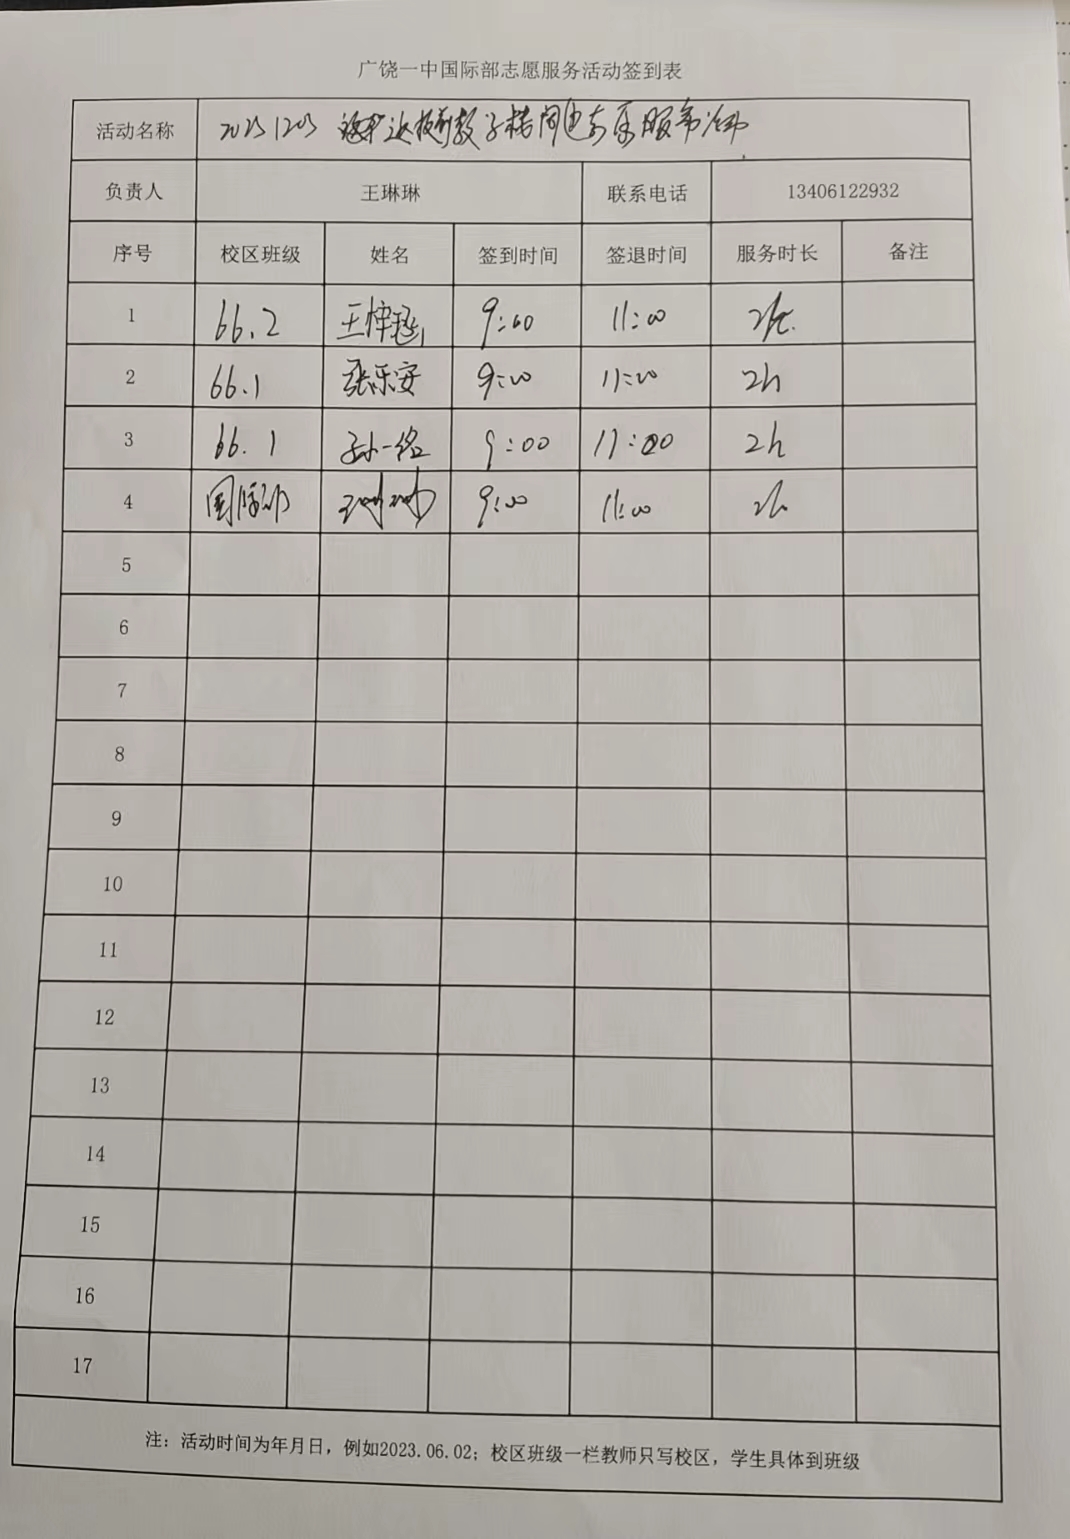 广饶一中国际部志愿服务活动签到表
活动名称 20231203
负责人 王琳琳 联系电话 13406122932
序号 校区班级 姓名 签到时间 签退时间 服务时长 备注
1 66.2 9:00 11:00 2h
2 66.1 张乐安 9:00 11:00 2h
3 66.1 孙一铭 9:00 11:00 2h
4 国际部 王琳琳 9:00 11:00 2h
5
6
7
8
9
10
11
12
13
14
15
16
17
注：活动时间为年月日，例如2023.06.02；校区班级一栏教师只写校区，学生具体到班级